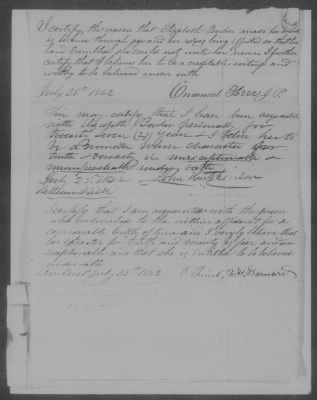 I certify, the reason that Elizabeth Barker made her mark
is because through age and her nerves being affected so that her
hand trembles she could not write her name I further
certify that I believe her to be a creditable witness and
worthy to be believed under oath
July 25th 1842 Emanuel J.P.
This may certify that I have been acquainted
with Elizabeth Barker personally for
twenty seven (27) years — I her to
be a woman whose character for
truth & honesty is unexceptionable &
unimpeachable under oath
July 25 1842 John
William
I certify that I am acquainted with the person
who subscribed to the within affidavit for a
considerable length of time and I verily believe that
her character for truth and veracity is fair and un
exceptionable and that she is entitled to be believed
under oath
July 25th 1842 Barnard